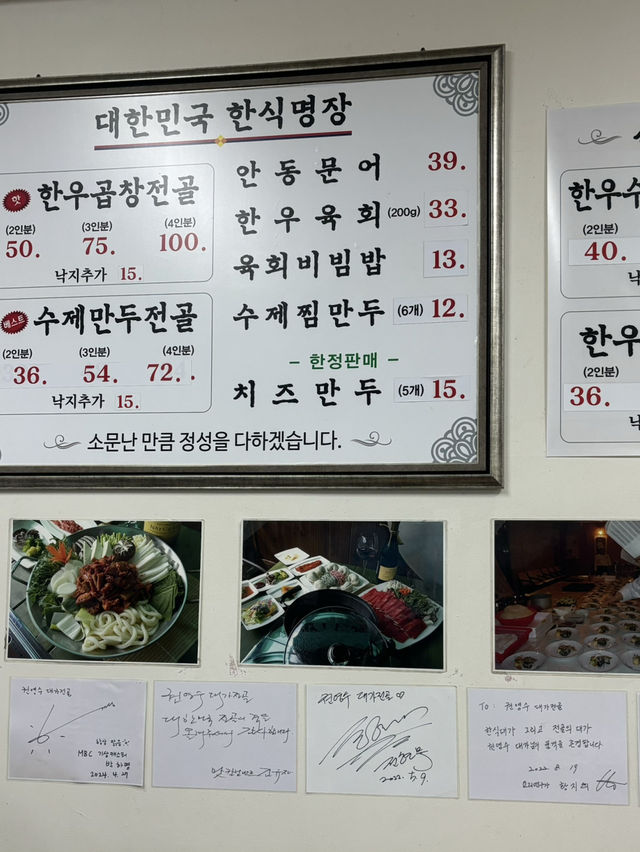 대한민국 한식명장
핫 한우곱창전골
(2인분) (3인분) (4인분)
50. 75. 100.
낙지추가 15.
베스트 수제만두전골
(2인분) (3인분) (4인분)
36. 54. 72.
낙지추가 15.
안동문어 39.
한우육회 (200g) 33.
육회비빔밥 13.
수제찜만두 (6개) 12.
- 한정판매 -
치즈만두 (5개) 15.
소문난 만큼 정성을 다하겠습니다.
한우수
(2인분)
40.
한우
(2인분)
36.
권영수 대가전골
MBC 기상캐스터
2024. 4. 29
권영수 대가전골
권영수 대가전골
2022.
To : 권영수 대가전골
한식대가 그리고 전골의 대가
권영수 대가님의 음식을 존경합니다
2022. 8. 19